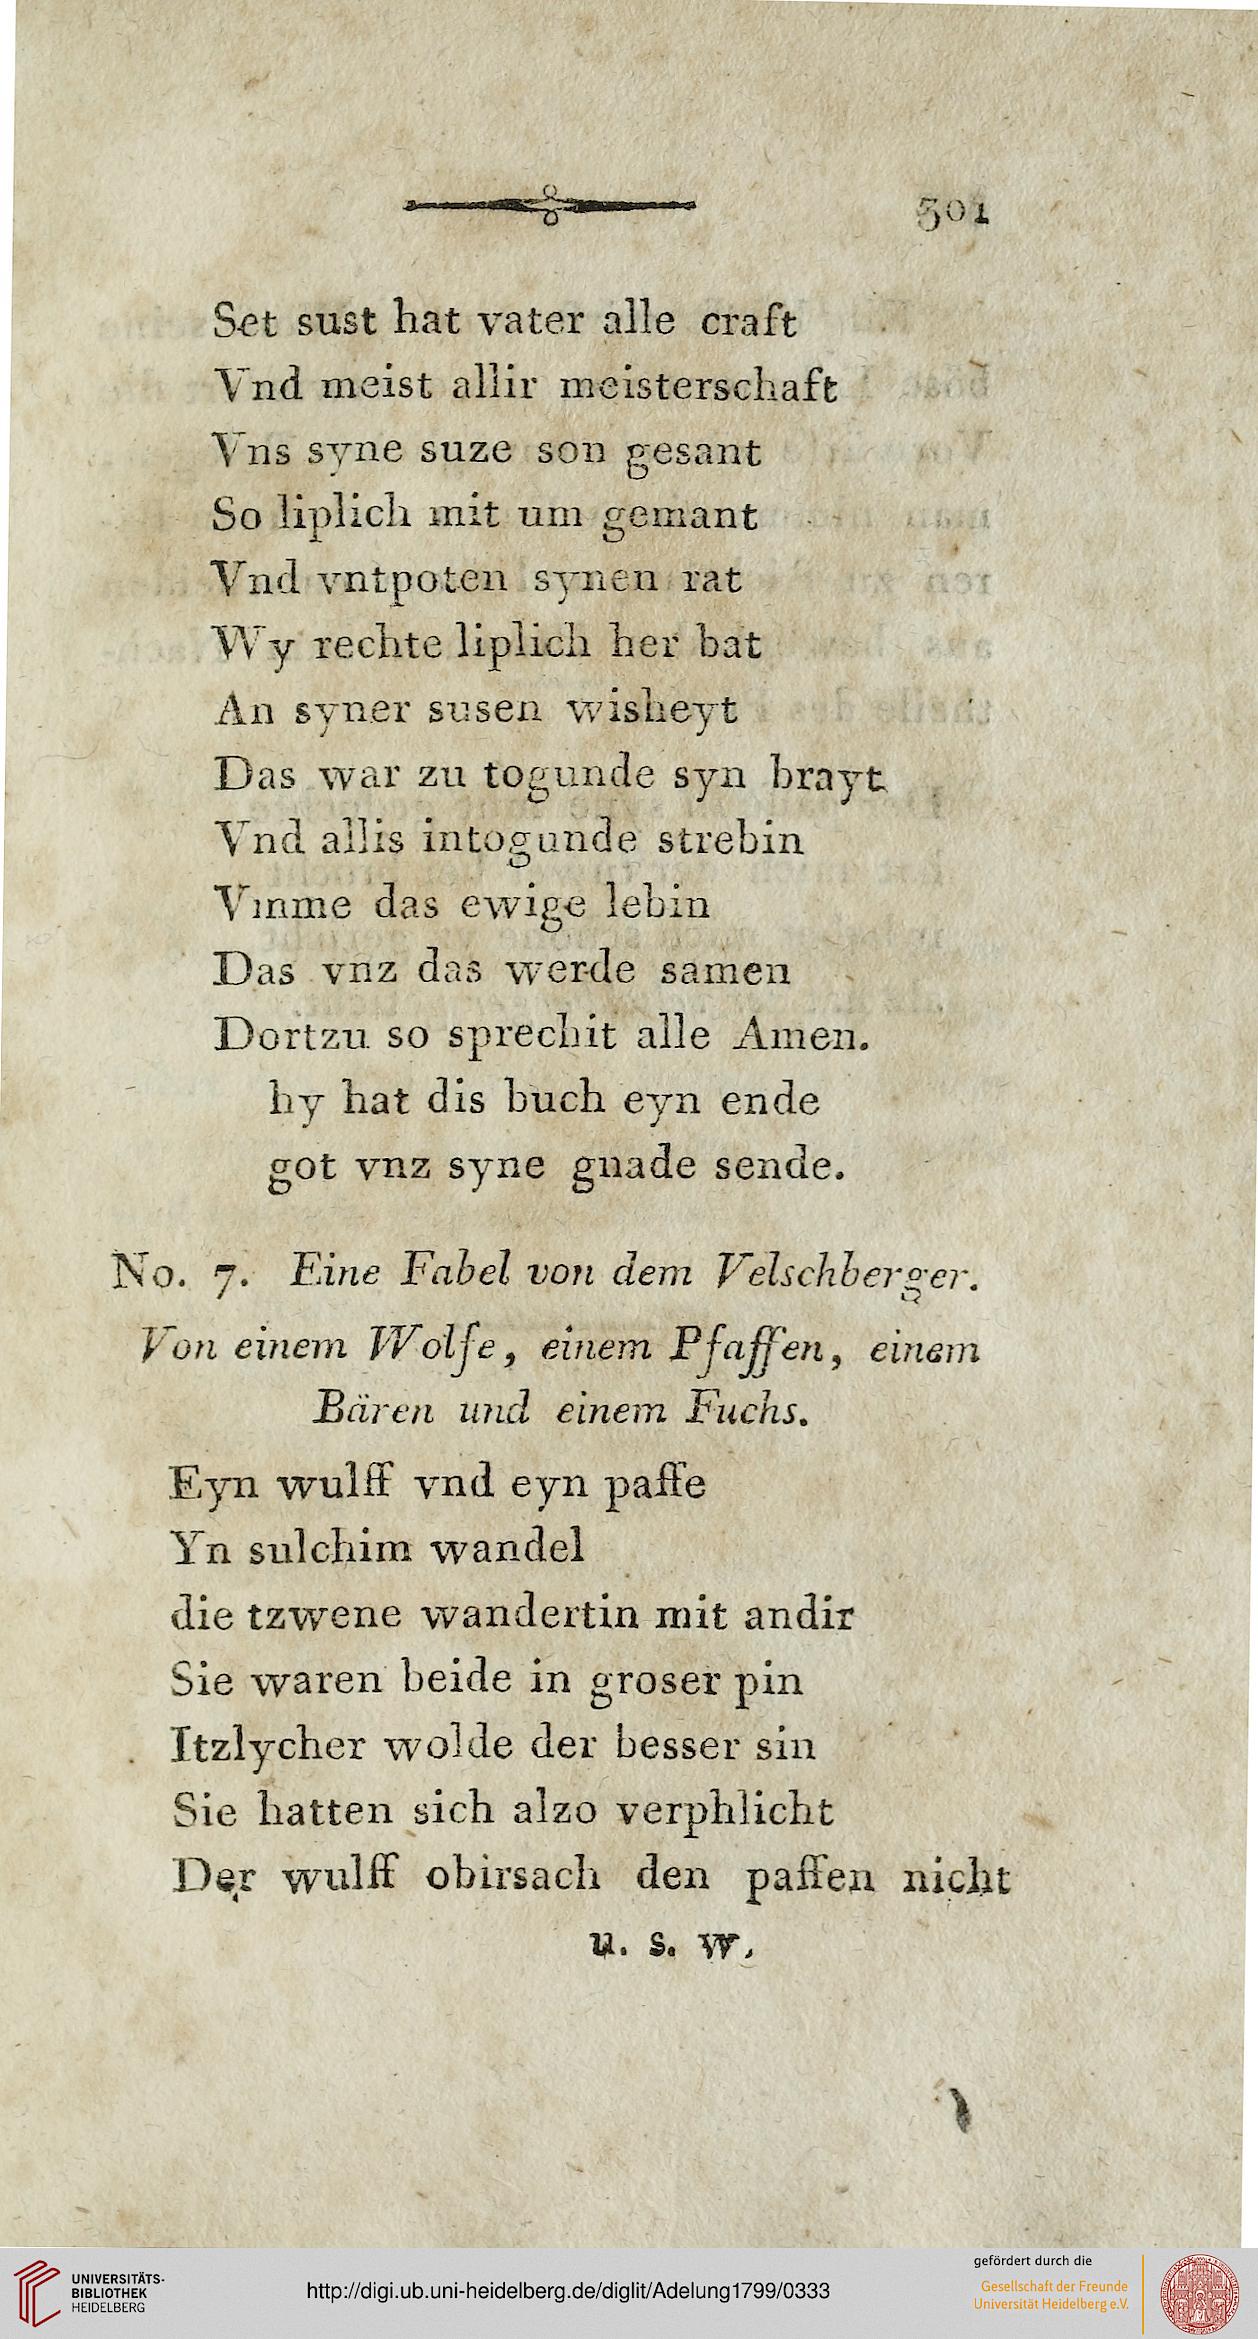 301
Set sust hat vater alle craft
Vnd meist allir meisterschaft
Vns syne suze son gesant
So liplich mit um gemant
Vnd vntpoten synen rat
Wy rechte liplich her bat
An syner susen wisheyt
Das war zu togunde syn brayt
Vnd allis intogunde strebin
Vmme das ewige lebin
Das vnz das werde samen
Dortzu so sprechit alle Amen.
hy hat dis buch eyn ende
got vnz syne gnade sende.
No. 7. Eine Fabel von dem Velschberger.
Von einem Wolfe, einem Pfaffen, einem
Bären und einem Fuchs.
Eyn wulff vnd eyn paffe
Yn sulchim wandel
die tzwene wandertin mit andir
Sie waren beide in groser pin
Itzlycher wolde der besser sin
Sie hatten sich alzo verphlicht
Der wulff obirsach den paffen nicht
u. s. w.
UNIVERSITÄTS-
BIBLIOTHEK
HEIDELBERG
http://digi.ub.uni-heidelberg.de/diglit/Adelung1799/0333
gefördert durch die
Gesellschaft der Freunde
Universität Heidelberg e.V.